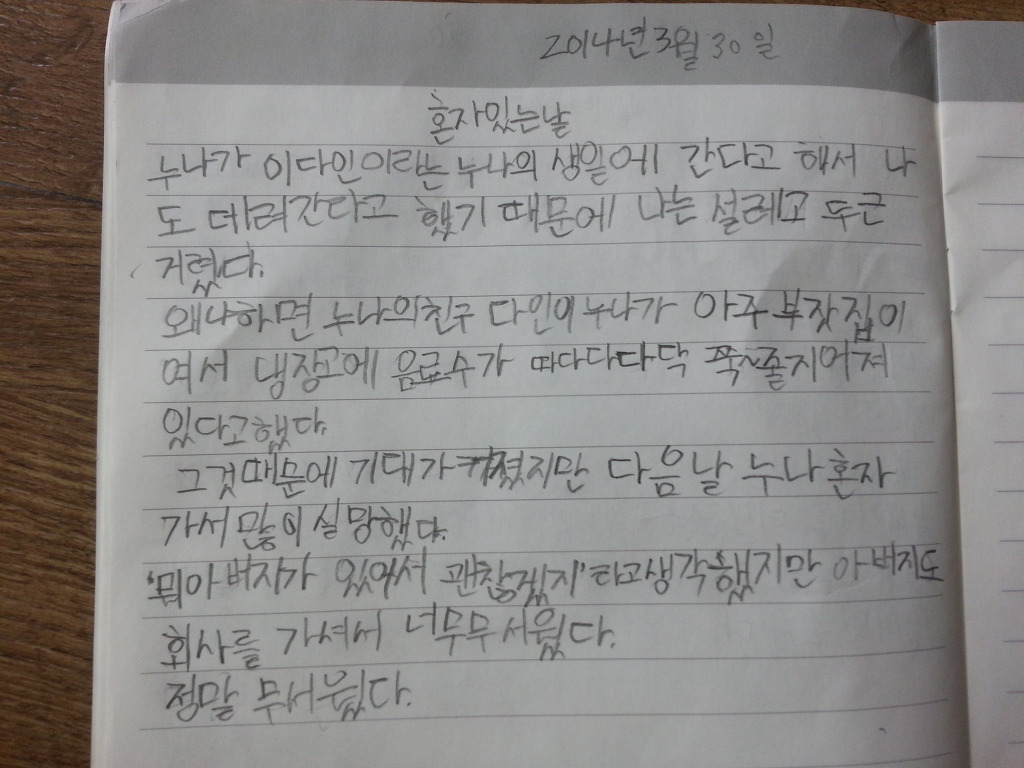 2014년 3월 30일
혼자있는날
누나가 이다인이라는 누나의 생일에 간다고 해서 나
도 데려간다고 했기 때문에 나는 설레고 두근
거렸다.
왜냐하면 누나의친구 다인이누나가 아주 부잣집이
여서 냉장고에 음료수가 따다다다닥 쭉~졸지어져
있다고했다.
그것때문에 기대가 커졌지만 다음날 누나혼자
가서많이실망했다.
'뭐아버지가 있어서 괜찮겠지'라고생각했지만 아버지도
회사를 가셔서 너무무서웠다.
정말 무서웠다.